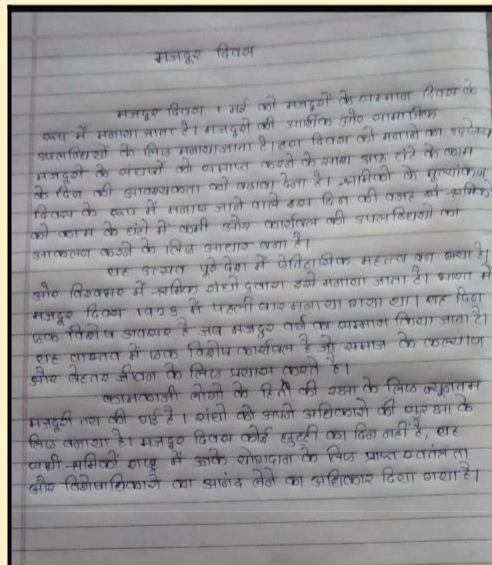 मजदूर दिवस
मजदूर दिवस 1 मई को मजदूरों के सम्मान दिवस के
रूप में मनाया जाता है। मजदूरों की आर्थिक और सामाजिक
उपलब्धियों के लिए मनाया जाता है। इस दिवस को मनाने का उद्देश्य
मजदूरों के संघर्षों को समाप्त करने के साथ आठ घंटे के काम
के दिन की आवश्यकता को बढ़ावा देना है। श्रमिकों के मूल्यांकन
दिवस के रूप में मनाए जाने वाले इस दिन की वजह से श्रमिक
को काम के घंटों में कमी और कार्यबल की उपलब्धियों का
आकलन करने के लिए आधार बना है।
यह उत्सव पूरे देश में ऐतिहासिक महत्त्व बन गया है।
और विश्वभर में श्रमिक संघों द्वारा इसे मनाया जाता है। भारत में
मजदूर दिवस 1923 में पहली बार मनाया गया था। यह दिन
एक विशेष अवसर है जब मजदूर वर्ग का सम्मान किया जाता है।
यह वास्तव में एक विशेष कार्यबल है जो समाज के कल्याण
और बेहतर जीवन के लिए प्रयास करते है।
कामकाजी लोगों के हितों की रक्षा के लिए न्यूनतम
मजदूरी तय की गई है। संघों को अपने अधिकारों की सुरक्षा के
लिए बनाया है। मजदूर दिवस कोई छुट्टी का दिन नहीं है, यह
सभी श्रमिकों राष्ट्र में उनके योगदान के लिए प्राप्त स्वतंत्रता
और विशेषाधिकारों का आनंद लेने का अधिकार दिया गया है।